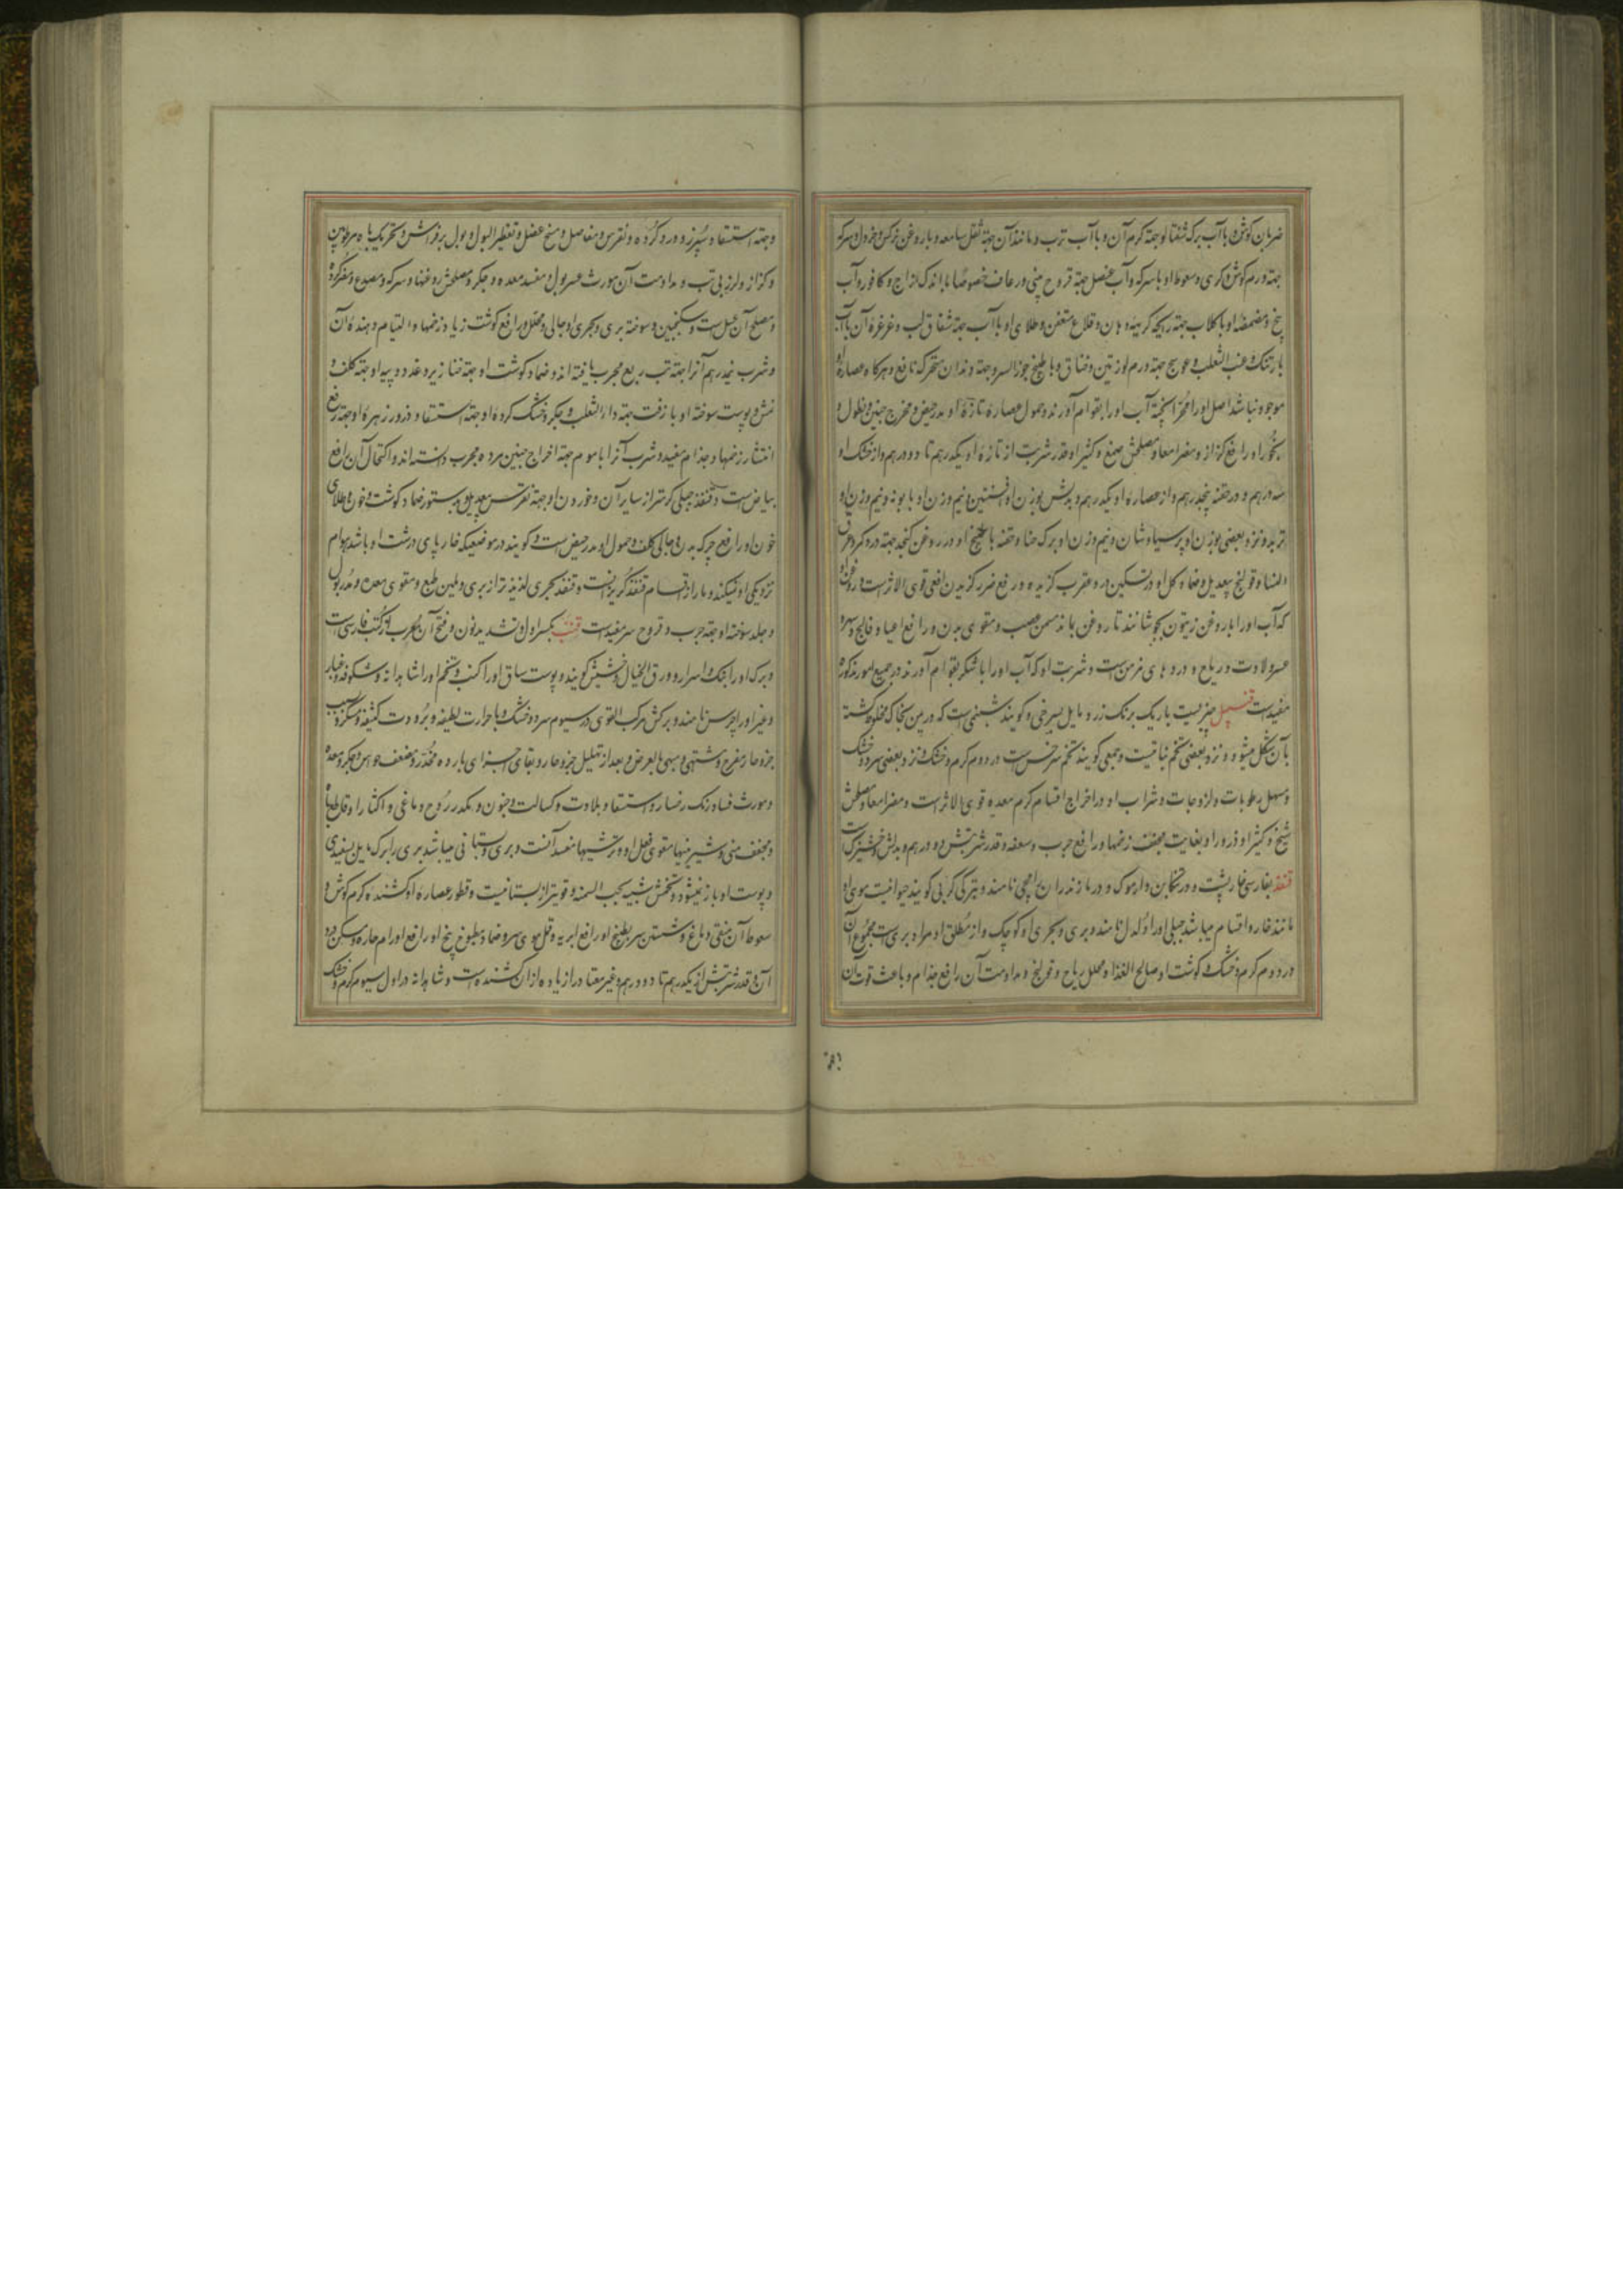 ضربان کوش و با آب برک شفتالو جهته کرم آن و با آب ترب و مانند آن جهته ثقل سامعه و با روغن نرکس و خردل و سرکه
جهته ورم کوش و کری و سعوط او با سرکه و آب عنصل جهته قروح بینی و رعاف خصوصا با اندک زاج و کافور و آب
یخ و مضمضه او با کلاب جهته ریحه کریهه دهان و قلاع متعفن و طلای او با آب جهته شقاق لب و غرغره آن با آب
بارتنک و عنب الثعلب و عوسج جهته ورم لوزتین و خناق و با طبیخ جوز السرو جهته دندان متحرک نافع و هرکاه عصاره او
موجود نباشد اصل او را آب او را بقوام آورند و حمول عصاره تازه او مدر حیض و مخرج جنین و نطول و
بخور او رافع کزاز و مضر امعا و مصلحش صمغ و کثیرا و قدر شربت از تازه او یکدرهم تا دو درهم و از خشک او
سه درهم و در حقنه پنجدرهم و از عصاره او یکدرهم و بدلش بوزن او افسنتین و نیم وزن او بابونه و نیم وزن او
تربد و نزد بعضی بوزن او پرسیاوشان و نیم وزن او برک حنا و حقنه با طبیخ او و در روغن کنجد جهته درد کمر و عرق
النسا و قولنج بیعدیل و ضماد و اکل او در تسکین درد عقرب کزیده و رفع ضرر کزیدن افعی قوی الاثر است و روغن او
که آب او را با روغن زیتون بجوشانند تا روغن بماند مسخن عصب و مقوی بدن و رافع اعیا و فالج و
عسر ولادت و ریاح و دردهای مزمن است و شربت او که آب او را با شکر بقوام آورند در جمیع امور مذکوره
مفید است قنبیل چیزیست باریک برنک زرد مایل بسرخی و کویند شبنمی است که در یمن بخاک مخلوط کشته
بآن شکل میشود و نزد بعضی تخم نباتیست و جمعی کویند تخم سرخس است در دوم کرم و خشک و نزد بعضی سرد و خشک
و مسهل رطوبات و لزوجات و شراب او در اخراج اقسام کرم معده قوی الاثر است و مضر امعا و مصلحش
شیح و کثیرا و ذرور او بغایت مجفف زخمها و رافع جرب و سعفه و قدر شربتش دو درهم و بدلش است
قنفذ بفارسی خارپشت و در تنکابن وارموک و در مازندران نامند و بترکی کرپی کویند حیوانیست موی او
مانند خار و اقسام میباشد جبلی او را دلدل نامند و بری و بحری او کوچک و از مطلق او مراد بری است مجموع آن
در دوم کرم و خشک و کوشت او صالح الغذا و محلل ریاح و قولنج و مداومت آن رافع جذام و باعث قوت آن
و جهته استسقا و سپرز و درد کرده و نقرس و مفاصل و فسخ عضل و تقطیر البول و بول بر فراش و تحریک باه مرطوبین
و کزاز و لرز بی تب و مداومت آن مورث عسر بول و مفسد معده و جکر و مصلحش روغنها و سرکه و مضر کرده
و مصلح آن عسل است و سکنجبین و سوخته بری و بحری او جالی و محلل و رافع کوشت زیاد زخمها و التیام دهنده آن
و شرب نیمدرهم آنرا جهته تب ربع مجرب یافته اند و ضماد کوشت او جهته خنازیر و غدد و پیه او جهته کلف و
نمش و پوست سوخته او با زفت جهته داء الثعلب و جکر خشک کرده او جهته استسقا و ذرور زهره او جهته رفع
انتشار زخمها و جذام مفید و شرب آنرا با موم جهته اخراج جنین مرده مجرب دانسته اند و اکتحال آن رافع
بیاض است و قنفذ جبلی کرمتر از سایر آن و خوردن او جهته نقرس بیعدیل و بدستور ضماد کوشت و خون و طلای
خون او رافع چرک بدن و جالی کلف و حمول او مدر حیض است و کویند در موضعیکه خار پای درشت او باشد هوام
نزدیکی او نمیکنند و مار از اقسام قنفذ کریزانست و قنفذ بحری لذیذتر از بری و ملین طبع و مقوی معده و مدر بول
و جلد سوخته او جهته جرب و قروح سر مفید است قنب بکسر اول و تشدید نون و فتح آن معرب از کنب فارسی است
و برک او را بنک و اسرار و ورق الخیال و حشیش کویند و پوست ساق او را کنب و تخم او را شاهدانه و شکوفه و غبار
و غیر او را چرس نامند و برکش مرکب القوی در سیوم سرد و خشک و با حرارت لطیفه و برودت کثیفه و مسکر و بسبب
جزو حار مفرح و مشتهی و مبهی بالعرض و بعد از تحلیل جزو حار و بقای اجزای بارده مخدر و مضعف حواس و جکر و معده
و مورث فساد رنک رخسار و استسقا و بلادت و کسالت و جنون و مکدر روح دماغی و اکثار او قاطع باه
و مجفف منی و شیرینیها مقوی فعل او و ترشیها مفسد آنست و بری و بستانی میباشد بری را برک مایل بسفیدی
و پوست او باز نمیشود و تخمش شبیه بحب السمنه و قویتر از بستانیست و قطور عصاره او کشنده کرم کوش و
سعوط آن منقی دماغ و شستن سر بطبیخ او رافع ابریه و قمل موی سر و ضماد مطبوخ بیخ او رافع اورام حاره و مسکن درد
آن و قدر شربتش از یکدرهم تا دو درهم و غیر معتاد را زیاده از آن کشنده است و شاهدانه در اول سیوم کرم و خشک